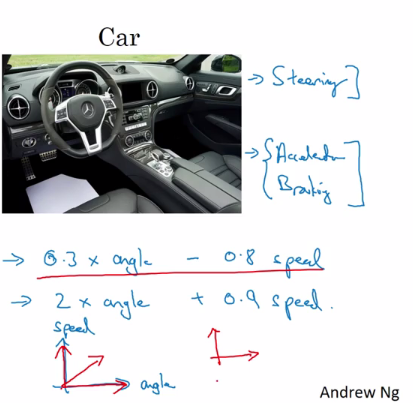 Car
→ Steering ]
→ { Acceleration
Braking ]
→ 0.3 x angle - 0.8 speed
→ 2 x angle + 0.9 speed.
speed
angle
Andrew Ng